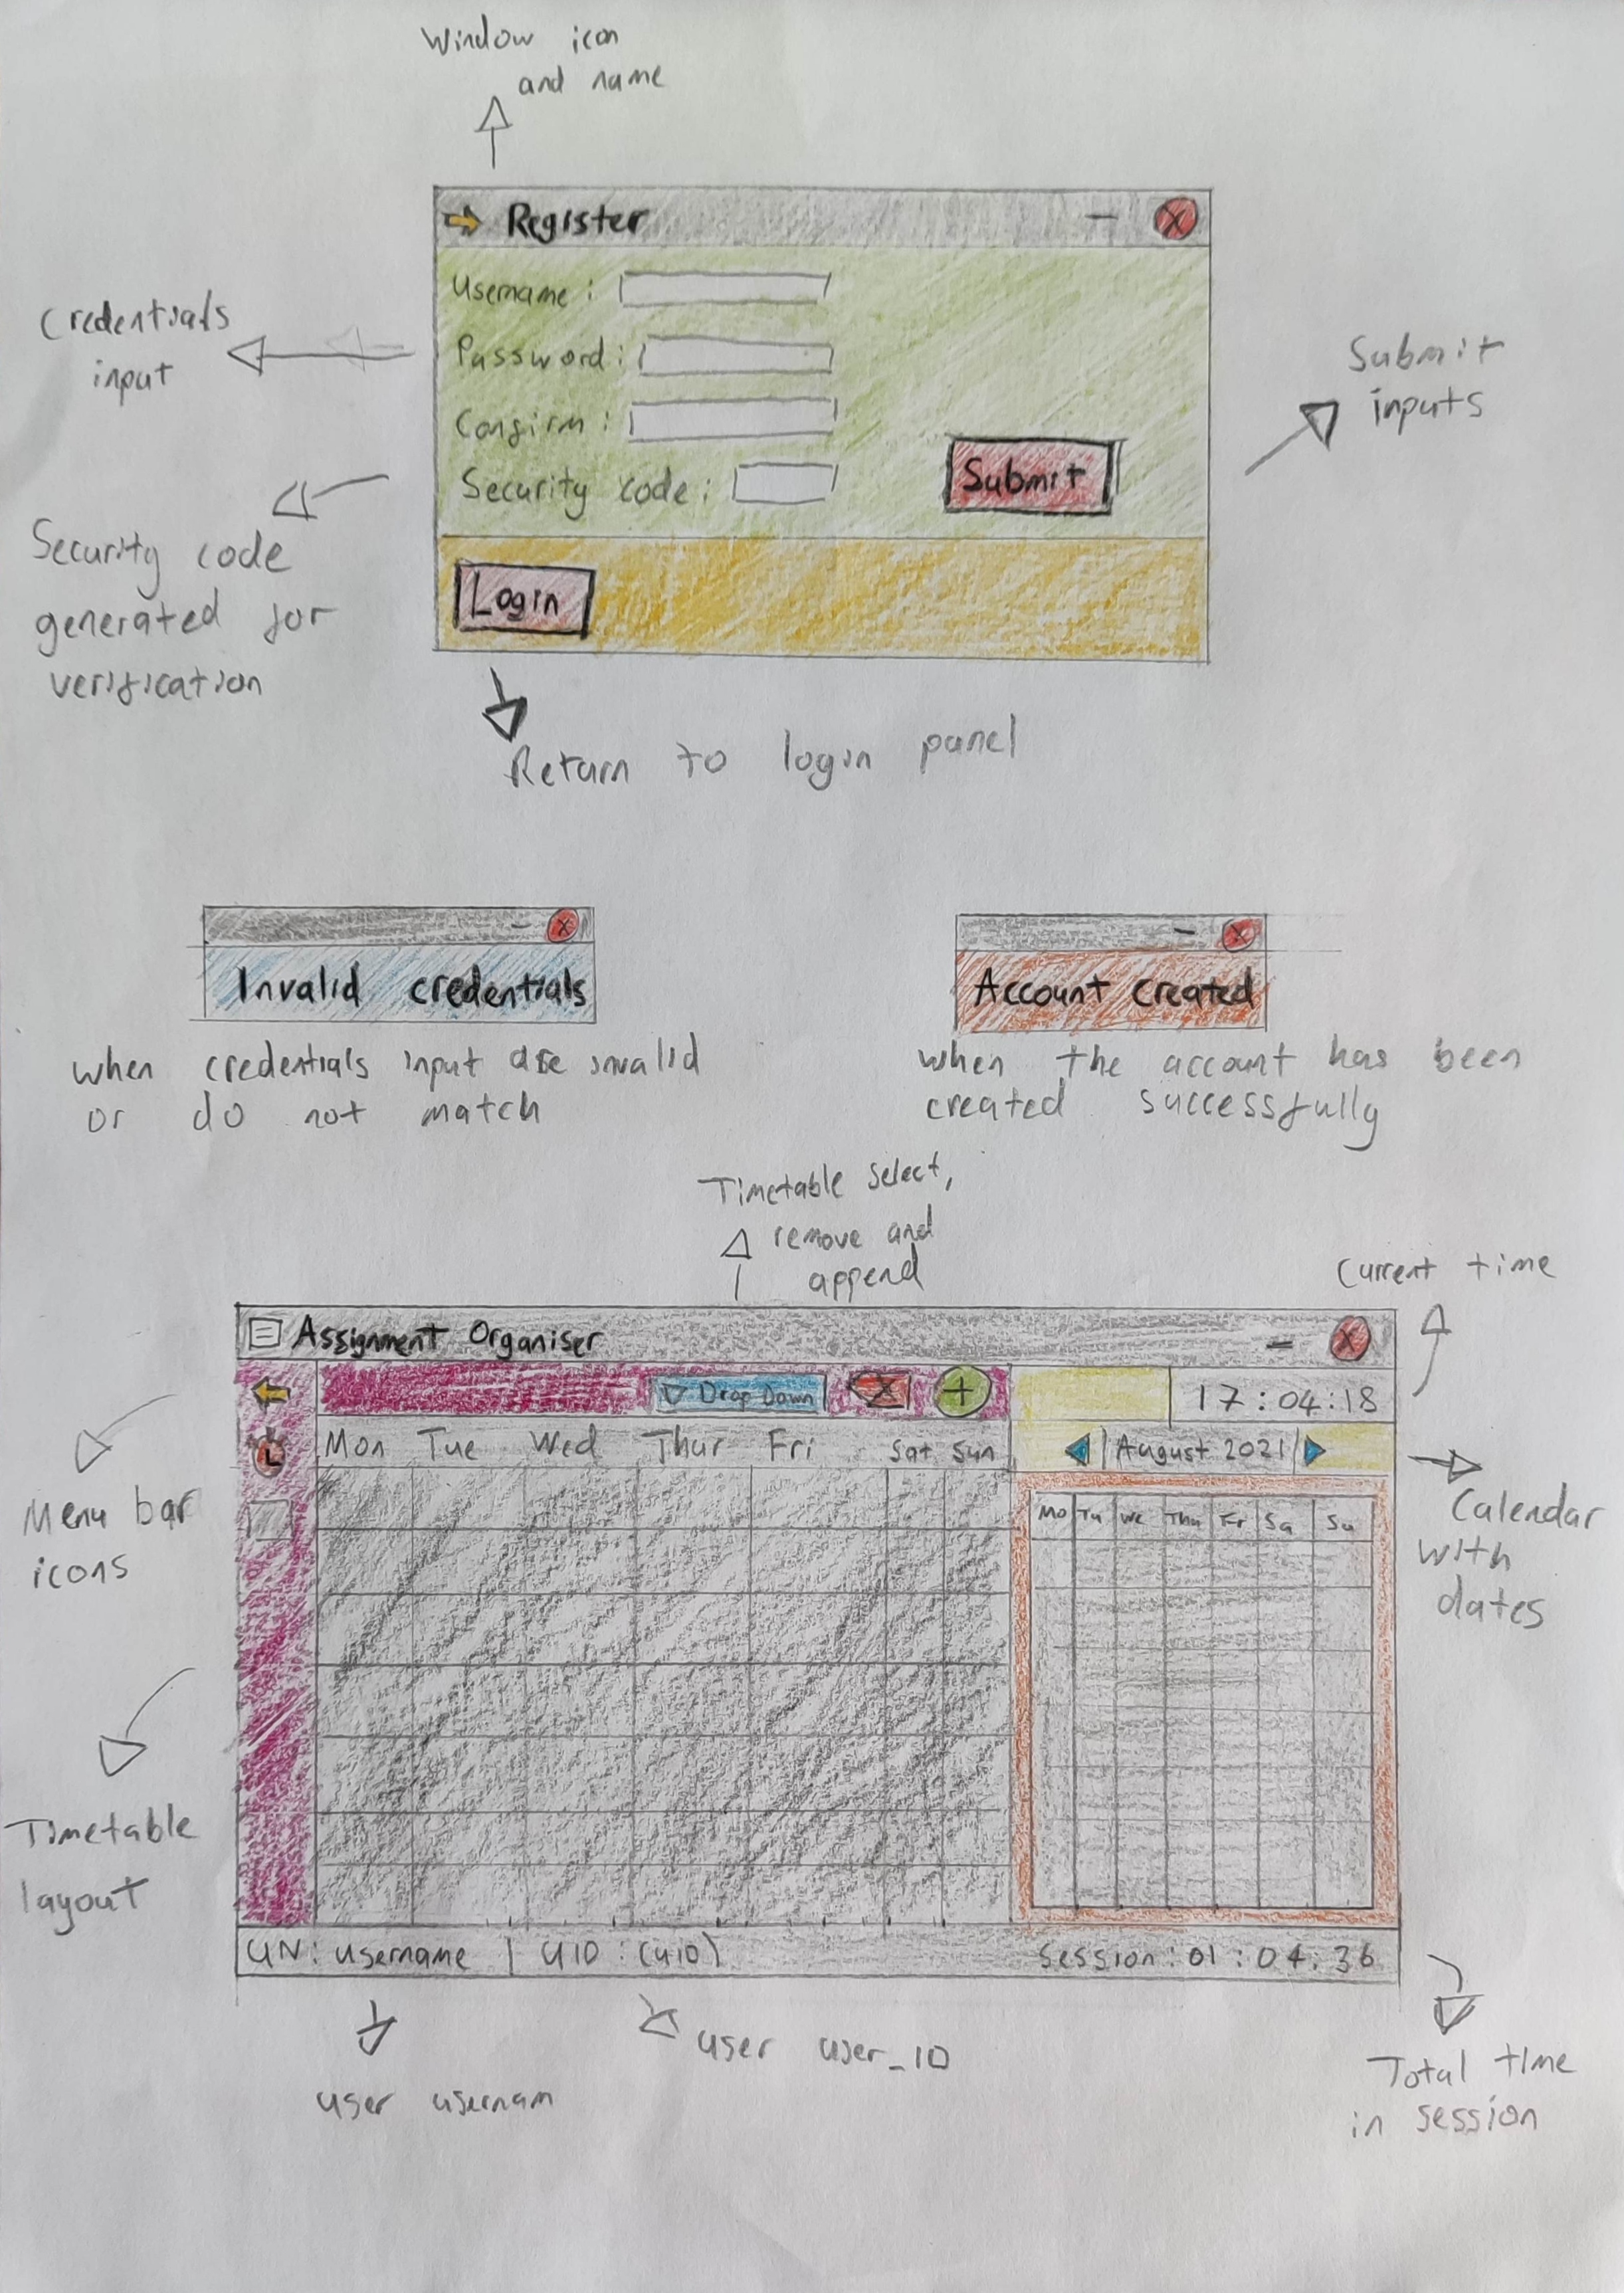 Window icon
and name
Register
-
X
Username :
Password :
Confirm :
Security code :
Submit
Login
Credentials
input
Submit
inputs
Security code
generated for
verification
Return to login panel
- X
Invalid credentials
when credentials input are invalid
or do not match
- X
Account created
when the account has been
created successfully
Timetable select,
remove and
append
Current time
Assignment Organiser
- X
Drop Down
X
+
17:04:18
Mon Tue Wed Thur Fri Sat Sun
August 2021
Mo Tu We Thu Fr Sa Su
Menu bar
icons
Calendar
with
dates
Timetable
layout
UN: username | UID : (UID)
Session: 01 : 04: 36
user usernam
user user_ID
Total time
in session